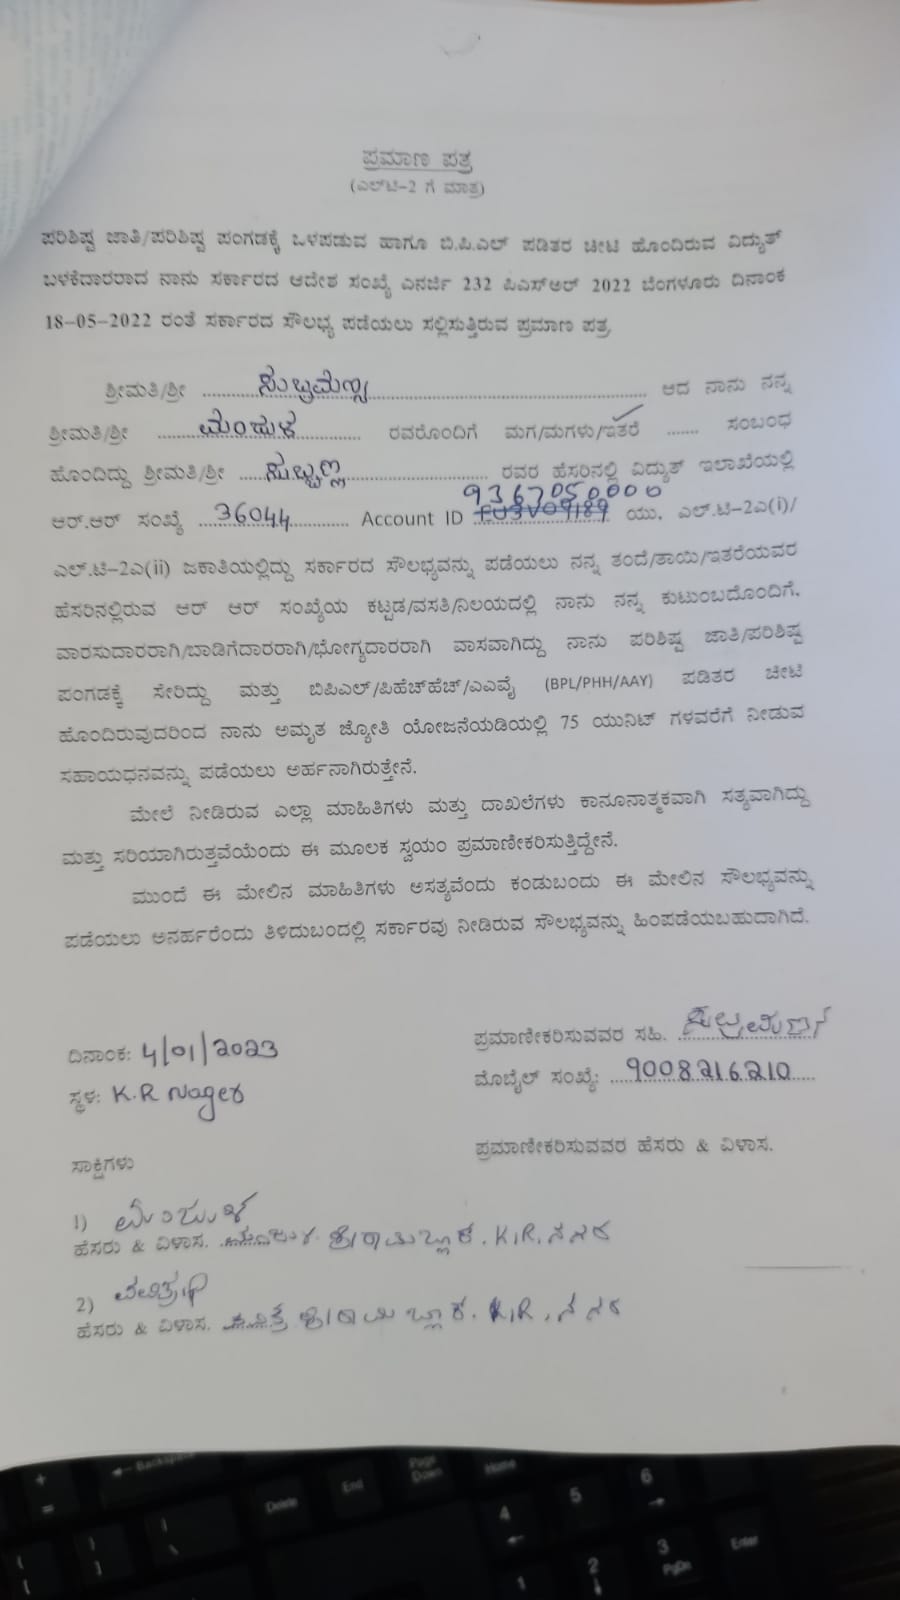 ಪ್ರಮಾಣ ಪತ್ರ
(ಎಲ್‌ಟಿ-2 ಗೆ ಮಾತ್ರ)
ಪರಿಶಿಷ್ಟ ಜಾತಿ/ಪರಿಶಿಷ್ಟ ಪಂಗಡಕ್ಕೆ ಒಳಪಡುವ ಹಾಗೂ ಬಿ.ಪಿ.ಎಲ್ ಪಡಿತರ ಚೀಟಿ ಹೊಂದಿರುವ ವಿದ್ಯುತ್
ಬಳಕೆದಾರರಾದ ನಾನು ಸರ್ಕಾರದ ಆದೇಶ ಸಂಖ್ಯೆ ಎನರ್ಜಿ 232 ಪಿಎಸ್ಆರ್ 2022 ಬೆಂಗಳೂರು ದಿನಾಂಕ
18-05-2022 ರಂತೆ ಸರ್ಕಾರದ ಸೌಲಭ್ಯ ಪಡೆಯಲು ಸಲ್ಲಿಸುತ್ತಿರುವ ಪ್ರಮಾಣ ಪತ್ರ
ಶ್ರೀಮತಿ/ಶ್ರೀ ಸುಬ್ರಮಣ್ಯ ಆದ ನಾನು ನನ್ನ
ಶ್ರೀಮತಿ/ಶ್ರೀ ಮಂಜುಳ ರವರೊಂದಿಗೆ ಮಗ/ಮಗಳು/ಇತರೆ ....... ಸಂಬಂಧ
ಹೊಂದಿದ್ದು ಶ್ರೀಮತಿ/ಶ್ರೀ ಸುಬ್ಬಣ್ಣ ರವರ ಹೆಸರಿನಲ್ಲಿ ವಿದ್ಯುತ್ ಇಲಾಖೆಯಲ್ಲಿ
9367050000
ಆರ್.ಆರ್ ಸಂಖ್ಯೆ 36044 Account ID ಯು, ಎಲ್.ಟಿ-2ಎ(i)/
ಎಲ್.ಟಿ-2ಎ(ii) ಜಕಾತಿಯಲ್ಲಿದ್ದು ಸರ್ಕಾರದ ಸೌಲಭ್ಯವನ್ನು ಪಡೆಯಲು ನನ್ನ ತಂದೆ/ತಾಯಿ/ಇತರೆಯವರ
ಹೆಸರಿನಲ್ಲಿರುವ ಆರ್ ಆರ್ ಸಂಖ್ಯೆಯ ಕಟ್ಟಡ/ವಸತಿ/ನಿಲಯದಲ್ಲಿ ನಾನು ನನ್ನ ಕುಟುಂಬದೊಂದಿಗೆ,
ವಾರಸುದಾರರಾಗಿ/ಬಾಡಿಗೆದಾರರಾಗಿ/ಭೋಗ್ಯದಾರರಾಗಿ ವಾಸವಾಗಿದ್ದು ನಾನು ಪರಿಶಿಷ್ಟ ಜಾತಿ/ಪರಿಶಿಷ್ಟ
ಪಂಗಡಕ್ಕೆ ಸೇರಿದ್ದು ಮತ್ತು ಬಿಪಿಎಲ್/ಪಿಹೆಚ್‌ಹೆಚ್/ಎಎವೈ (BPL/PHH/AAY) ಪಡಿತರ ಚೀಟಿ
ಹೊಂದಿರುವುದರಿಂದ ನಾನು ಅಮೃತ ಜ್ಯೋತಿ ಯೋಜನೆಯಡಿಯಲ್ಲಿ 75 ಯುನಿಟ್ ಗಳವರೆಗೆ ನೀಡುವ
ಸಹಾಯಧನವನ್ನು ಪಡೆಯಲು ಅರ್ಹನಾಗಿರುತ್ತೇನೆ.
ಮೇಲೆ ನೀಡಿರುವ ಎಲ್ಲಾ ಮಾಹಿತಿಗಳು ಮತ್ತು ದಾಖಲೆಗಳು ಕಾನೂನಾತ್ಮಕವಾಗಿ ಸತ್ಯವಾಗಿದ್ದು
ಮತ್ತು ಸರಿಯಾಗಿರುತ್ತವೆಯೆಂದು ಈ ಮೂಲಕ ಸ್ವಯಂ ಪ್ರಮಾಣೀಕರಿಸುತ್ತಿದ್ದೇನೆ.
ಮುಂದೆ ಈ ಮೇಲಿನ ಮಾಹಿತಿಗಳು ಅಸತ್ಯವೆಂದು ಕಂಡುಬಂದು ಈ ಮೇಲಿನ ಸೌಲಭ್ಯವನ್ನು
ಪಡೆಯಲು ಅನರ್ಹರೆಂದು ತಿಳಿದುಬಂದಲ್ಲಿ ಸರ್ಕಾರವು ನೀಡಿರುವ ಸೌಲಭ್ಯವನ್ನು ಹಿಂಪಡೆಯಬಹುದಾಗಿದೆ.
ಪ್ರಮಾಣೀಕರಿಸುವವರ ಸಹಿ.
ದಿನಾಂಕ: 4/01/2023
ಮೊಬೈಲ್ ಸಂಖ್ಯೆ: 9008216210
ಸ್ಥಳ: K.R Nager
ಪ್ರಮಾಣೀಕರಿಸುವವರ ಹೆಸರು & ವಿಳಾಸ.
ಸಾಕ್ಷಿಗಳು
1) ಮಂಜುಳ
ಹೆಸರು & ವಿಳಾಸ. K.R. ನಗರ
2)
ಹೆಸರು & ವಿಳಾಸ. K.R. ನಗರ
Backspace
Delete End Page Down Home
4 5 6
1 2 3 PgDn Enter